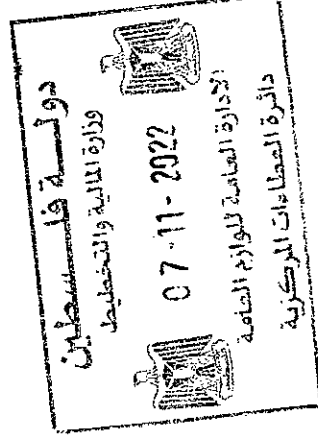 دولة فلسطين
وزارة المالية والتخطيط
07-11-2022
الادارة العامة للوازم العامة
دائرة العطاءات المركزية